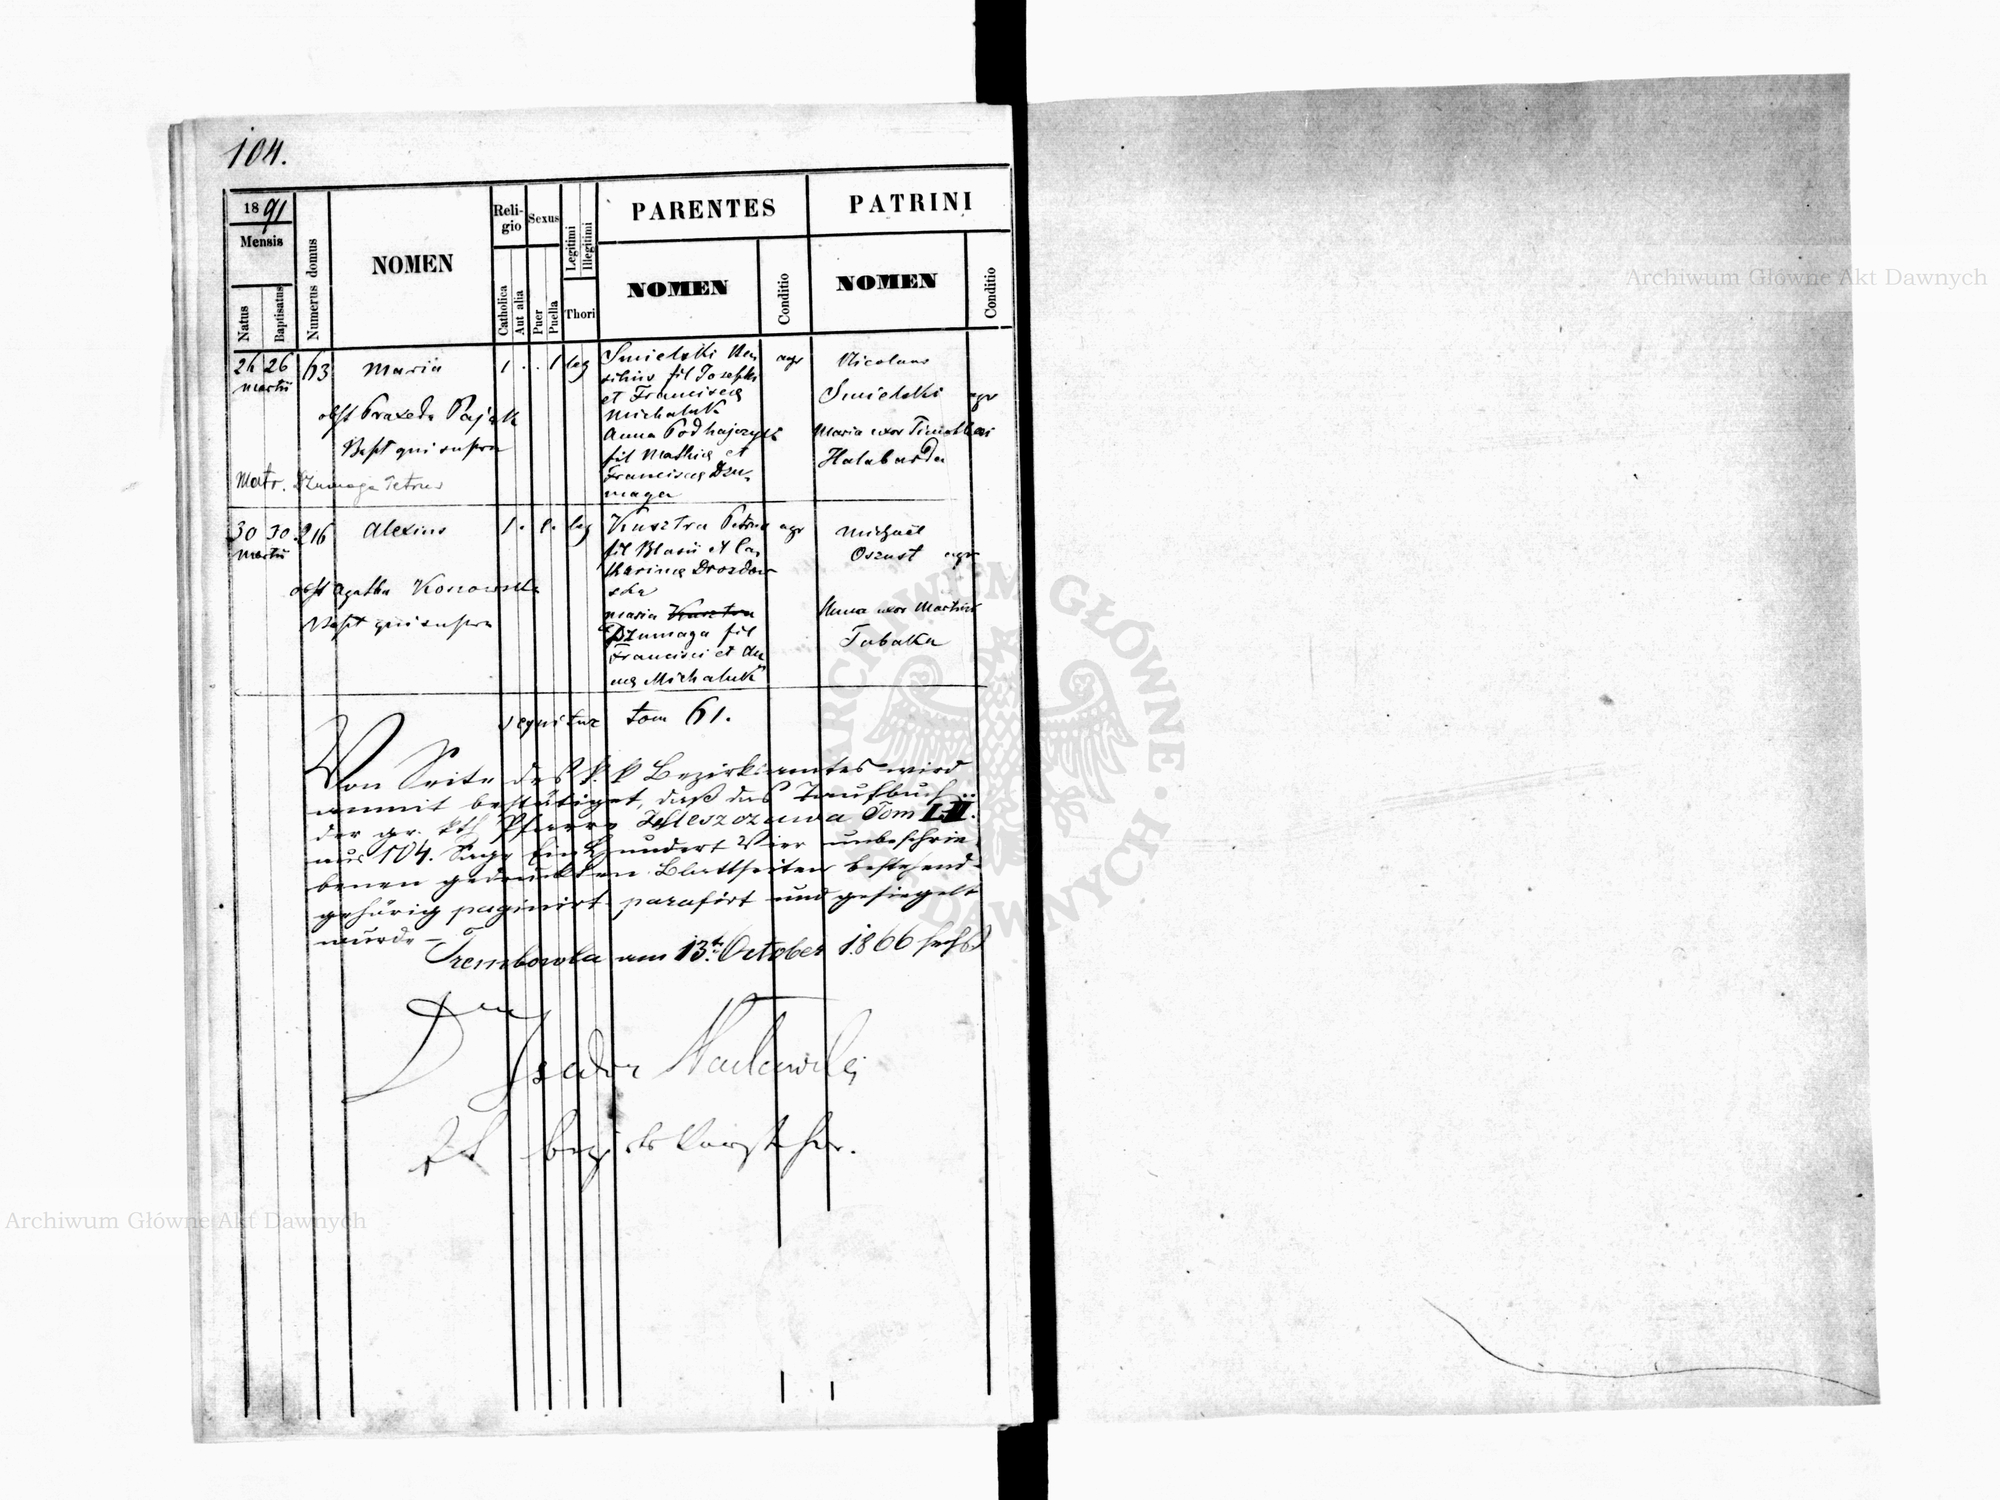 104.
1891
Mensis
Natus
Baptisatus
Numerus domus
NOMEN
Reli-
gio
Catholica
Aut alia
Sexus
Puer
Puella
Legitimi
Illegitimi
Thori
PARENTES
NOMEN
Conditio
PATRINI
NOMEN
Conditio
26 26
martii
63
Maria
1 . . 1 leg
obst Praxeda Pająk
Bapt qui supra
Matr. Dzumaga Petrus
Smielski
silius fil Josephi
et Francisca
Michaluk
Anna Podhajczyk
fil Mathiae et
Francisca Dzu-
maga
agr
Nicolaus
Smielski agr
Maria uxor Timothei
Halabarda
30 30
martii
216
Alexius
1 . 1 . leg
obst Agatha
Bapt qui supra
Kusztra Petrus
fil Blasii et Ca-
tharina Drozdow
ska
maria Kusztra
Dzumaga fil
Francisci et An
na Michaluk
agr
Michael
Oszust agr
Anna uxor Martini
Tabaka
sequitur tom 61.
Von Seite des k. k Bezirksamtes wird
anmit bestätiget, daß das Taufbuch
der gr. kth Pfarre Tom III.
aus 104. Sage Ein Hundert Vier unbeschrie-
benen gedruckten Blattseiten bestehend
gehörig paginirt parafirt und gesiegelt
wurde –
Trembowla am 13t. October 1866 sechs
Isidor
kk Bezirks Vorsteher.
ARCHIWUM GŁÓWNE · AKT DAWNYCH ·
Archiwum Główne Akt Dawnych
Archiwum Główne Akt Dawnych